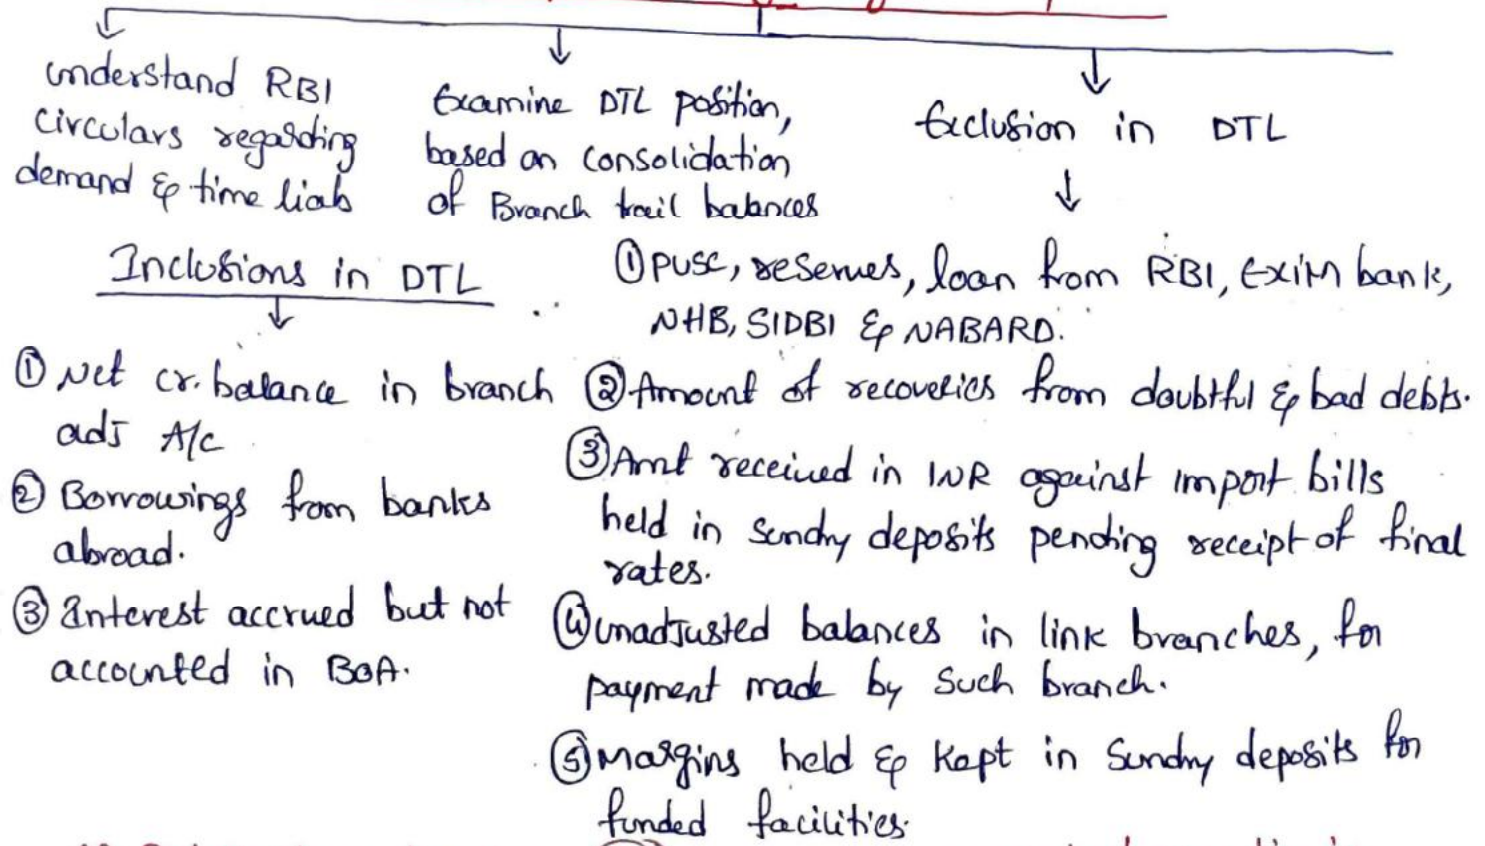 understand RBI
circulars regarding
demand & time liab
Examine DTL position,
based on consolidation
of Branch trail balances
Exclusion in DTL
Inclusions in DTL
① Net cr. balance in branch
adj A/c
② Borrowings from banks
abroad.
③ Interest accrued but not
accounted in BOA.
① PUSC, reserves, loan from RBI, EXIM bank,
NHB, SIDBI & NABARD.
② Amount of recoveries from doubtful & bad debts.
③ Amt received in INR against import bills
held in Sundry deposits pending receipt of final
rates.
④ unadjusted balances in link branches, for
payment made by such branch.
⑤ Margins held & kept in Sundry deposits for
funded facilities.